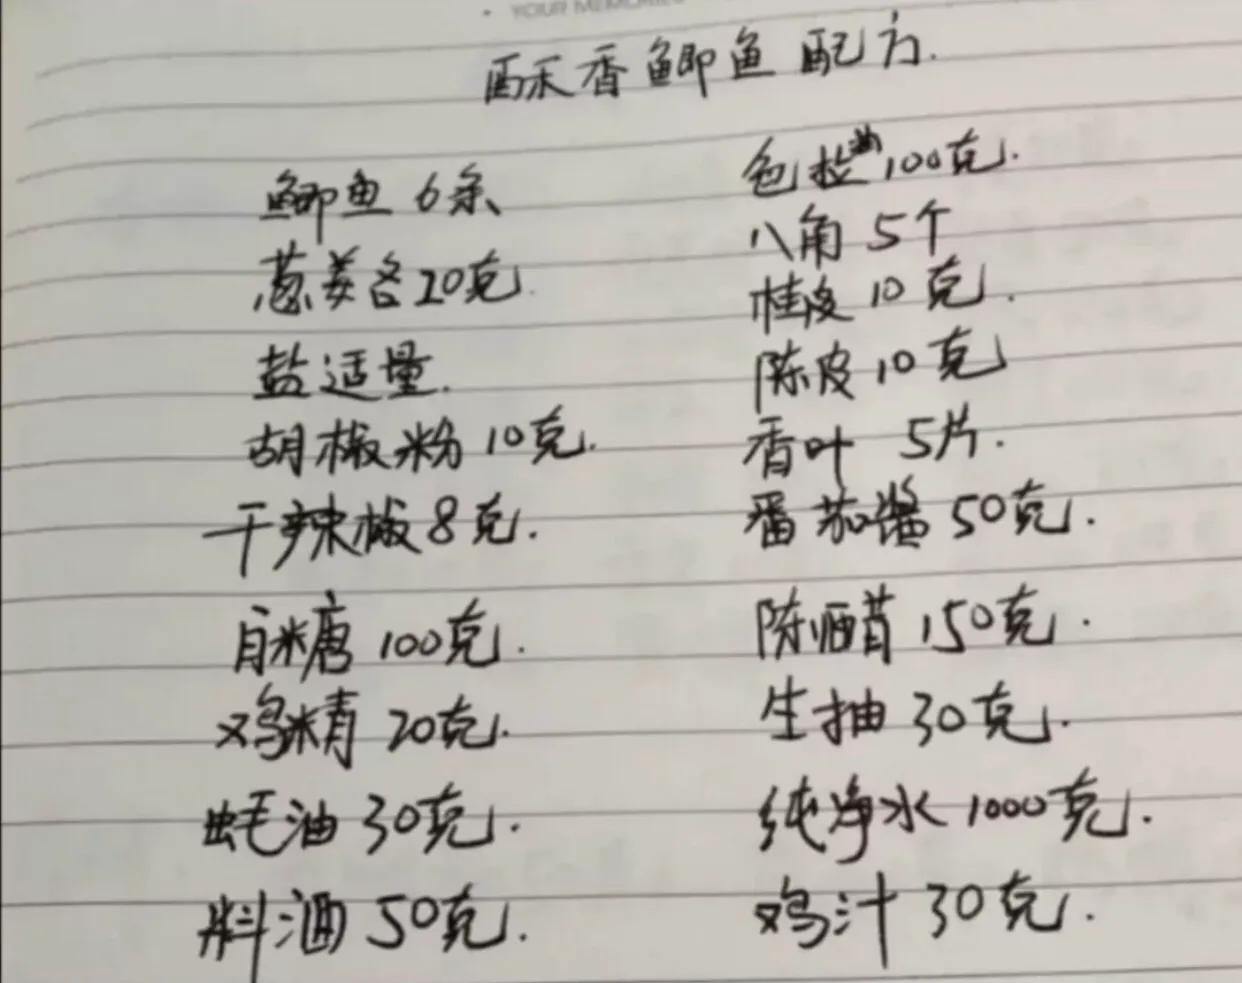 YOUR MEMORIES
酥香鲫鱼配方.
鲫鱼 6条
葱姜各20克.
盐适量.
胡椒粉 10克.
干辣椒 8克.
白糖 100克.
鸡精 20克.
蚝油 30克.
料酒 50克.
色拉油100克.
八角 5个
桂皮 10克.
陈皮 10克
香叶 5片.
番茄酱 50克.
陈醋 150克.
生抽 30克.
纯净水 1000克.
鸡汁 30克.